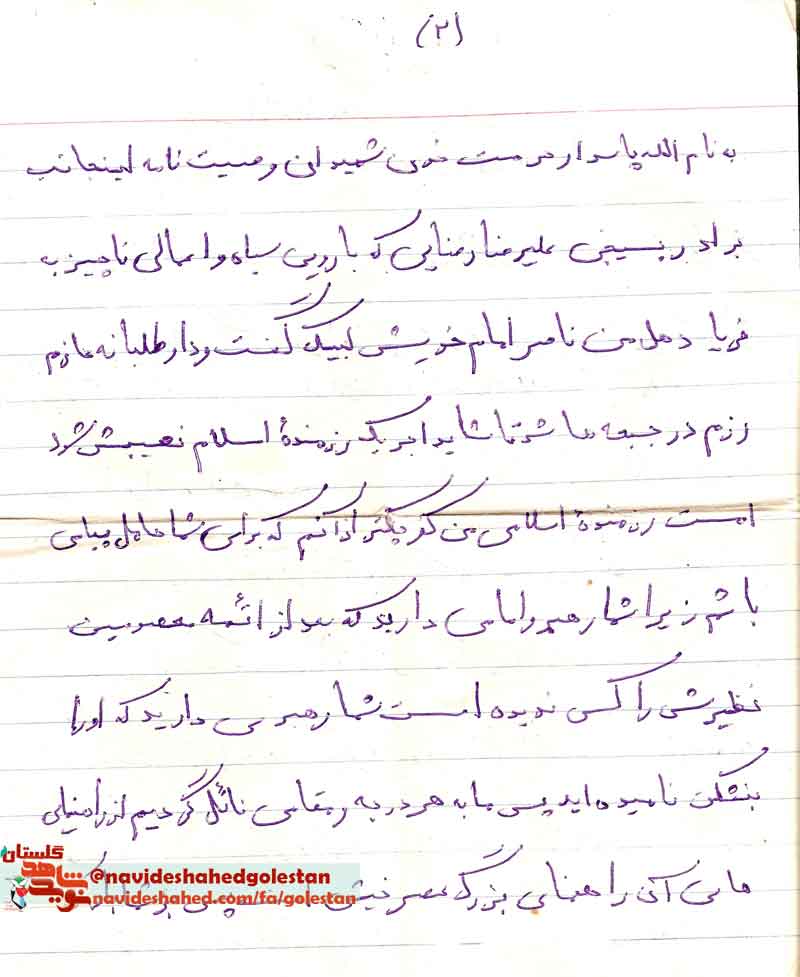 (۲)
به نام الله پاسدار حرمت خون شهیدان وصیت نامه اینجانب
برادر بسیجی علیرضا رضایی که با رویی سیاه و اعمالی ناچیز به
فریاد هل من ناصر امام خویش لبیک گفت و داوطلبانه عازم
رزم در جبهه ها شد تا شاید اجر یک رزمندهٔ اسلام نصیبش شود
امت رزمندهٔ اسلامی من کوچکتر از آنم که برای شما حامل پیامی
باشم زیرا شما رهبر و امامی دارید که بعد از ائمه معصومین
نظیرش را کسی ندیده است شما رهبری دارید که او را
بتشکن نامیده اید پس ما به هر درجه و مقامی نائل گردیم از راهنمایی
هایی آن راهنمای بزرگ پس بر شما باد
گلستان
نوید شاهد
@navideshahedgolestan
navideshahed.com/fa/golestan